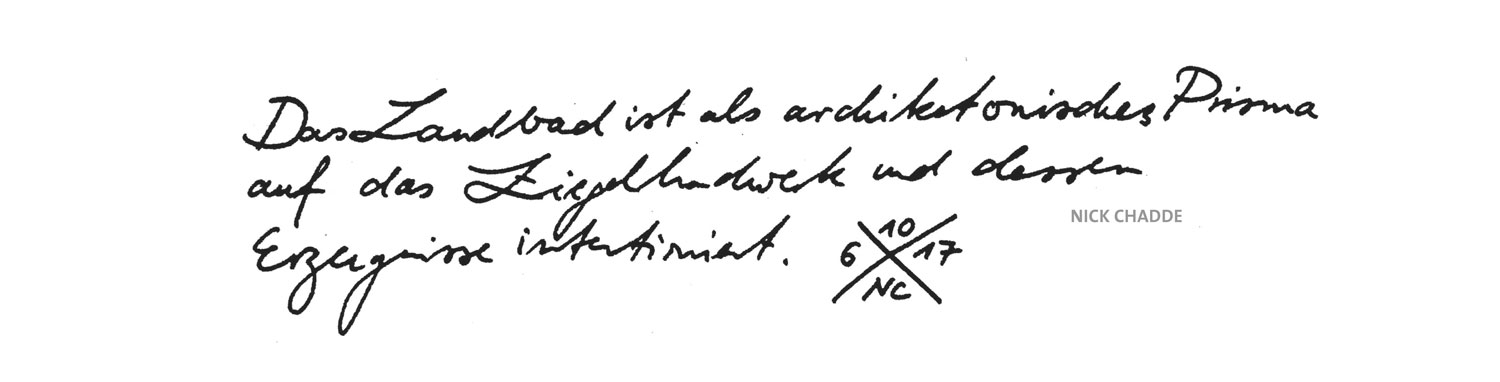 Das Landbad ist als architektonisches Prisma
auf das Ziegelhandwerk und dessen
Erzeugnisse
NICK CHADDE
10
6 17
NC